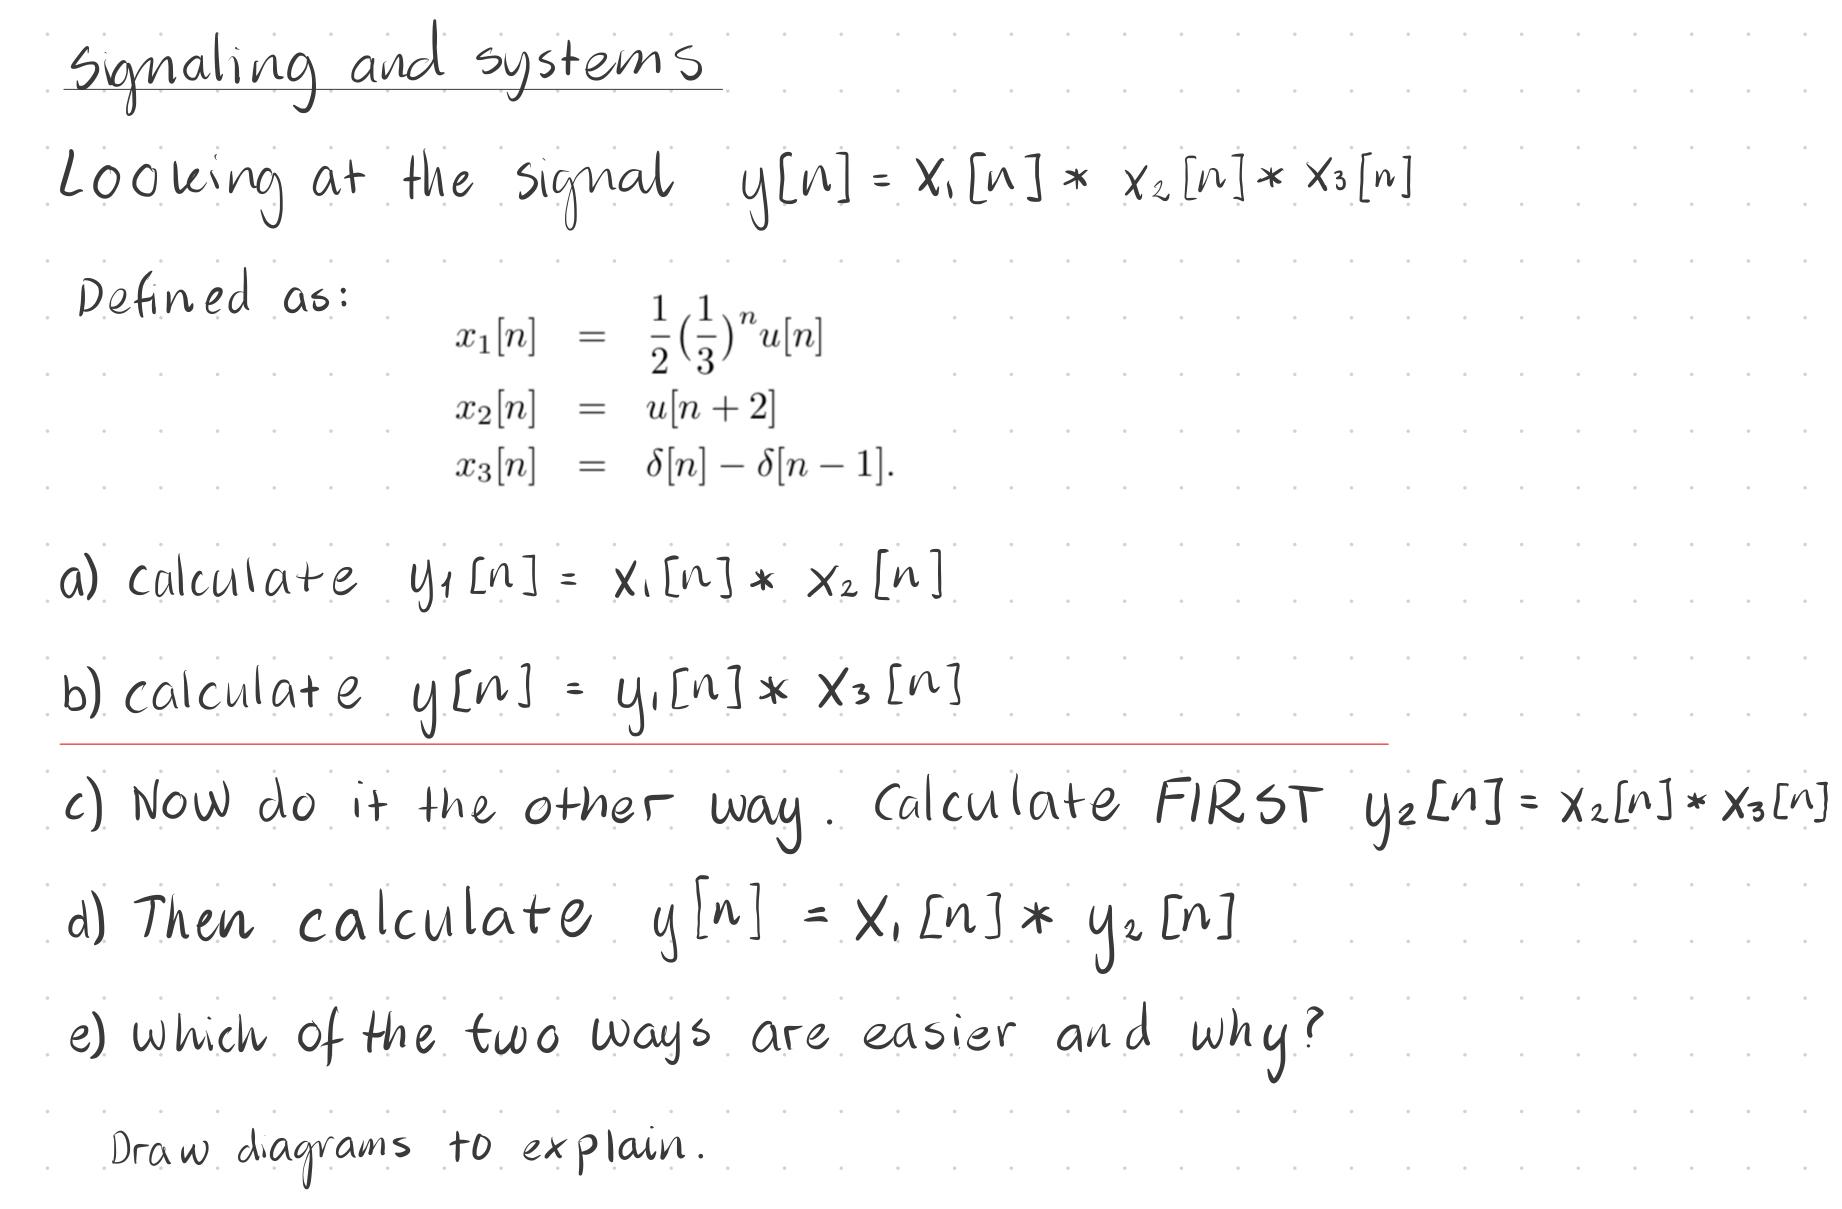 Signaling and systems
Looking at the signal y[n] = x₁[n] * x₂[n] * x₃[n]
Defined as:
x₁[n] = 1/2 (1/3)ⁿ u[n]
x₂[n] = u[n + 2]
x₃[n] = δ[n] − δ[n − 1].
a) calculate y₁[n] = x₁[n] * x₂[n]
b) calculate y[n] = y₁[n] * x₃[n]
c) Now do it the other way. Calculate FIRST y₂[n] = x₂[n] * x₃[n]
d) Then calculate y[n] = x₁[n] * y₂[n]
e) which of the two ways are easier and why?
Draw diagrams to explain.